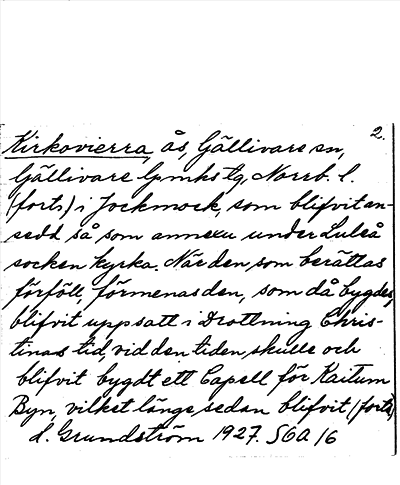 2.
Kirkovierra, ås, Gällivare sn,
Gällivare lpmks tg, Norrb. l.
(forts.) i Jockmock, som blifvit an-
sedd så som annexu under Luleå
socken kyrka. När den som berättas
förföll, förmenas den, som då bygdes,
blifvit uppsatt i Drottning Chris-
tinas tid, vid den tiden skulle och
blifvit bygdt ett Capell för Kaitum
Byn, vilket länge sedan blifvit (forts)
H. Grundström 1927. SOA 16